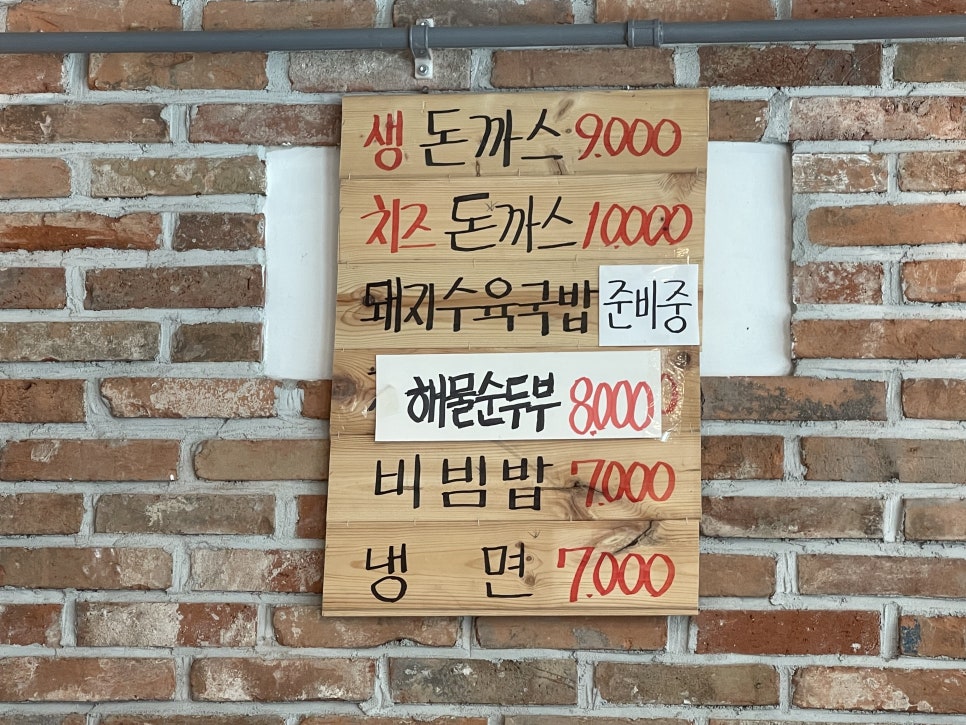 생 돈까스 9.000
치즈 돈까스 10.000
돼지수육국밥 준비중
해물순두부 8.000
비빔밥 7.000
냉면 7.000